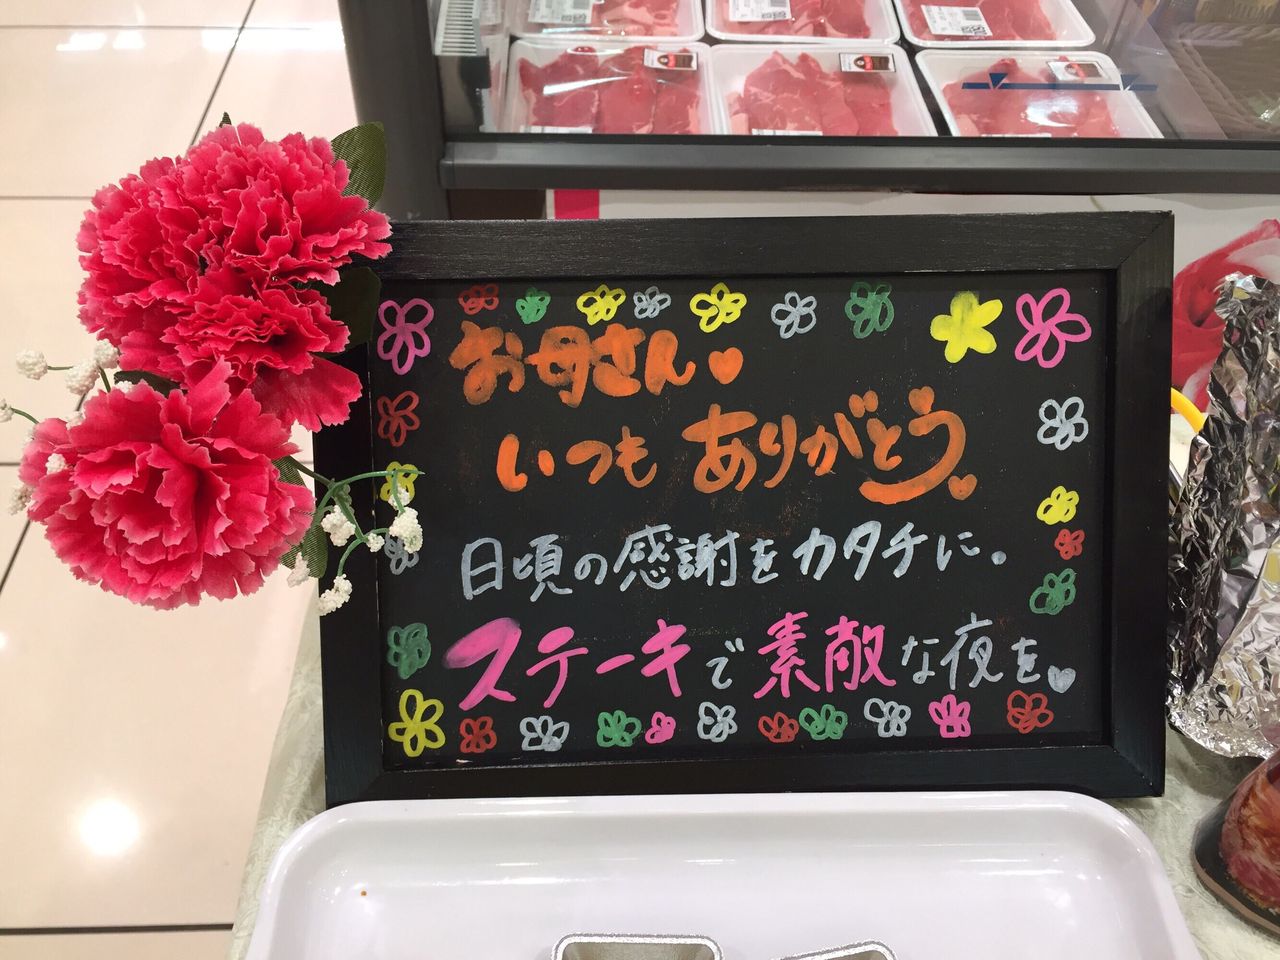 お母さん♥
いつもありがとう
日頃の感謝をカタチに。
ステーキで素敵な夜を♥